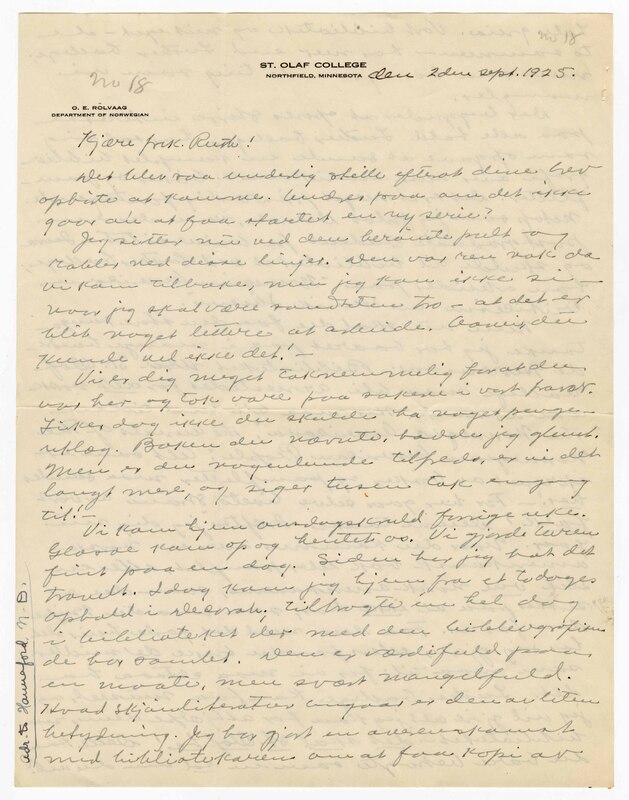 No 18
ST. OLAF COLLEGE
NORTHFIELD, MINNESOTA
den 2den sept. 1925.
O. E. ROLVAAG
DEPARTMENT OF NORWEGIAN
Kjære frk. Ruth!
Det blev saa underlig stille efterat dine brev
ophørte at komme. Undres paa om det ikke
gaar an at faa startet en ny serie?
Jeg sitter nu ved den berømte pult og
rabler ned disse linjer. Den var ren nok da
vi kom tilbake, men jeg kan ikke si –
naar jeg skal være sandheten tro – at det er
blit noget lettere at arbeide. Aanei du
kunde vel ikke det! –
Vi er dig meget taknemmelig for at du
var her og tok vare paa sakene i vort fravær.
Liker dog ikke du skulde ha noget penge-
utlæg. Boken du nævnte, hadde jeg glemt.
Men er du nogenlunde tilfreds, er vi det
langt mere, og siger tusen tak engang
til! –
Vi kom hjem onsdagskveld forrige uke.
kom op og hentet os. Vi gjorde turen
fint paa en dag. Siden har jeg hat det
travelt. Idag kom jeg hjem fra et todages
ophold i Decorah, tilbragte en hel dag
i biblioteket der med den bibliografien
de har samlet. Den er værdifuld paa
en maate, men svært mangelfuld.
Hvad skjønliteratur angaar er den av liten
betydning. Jeg har gjort en overenskomst
med bibliotekaren om at faa kopi av
adr. to Hannaford, N. D.